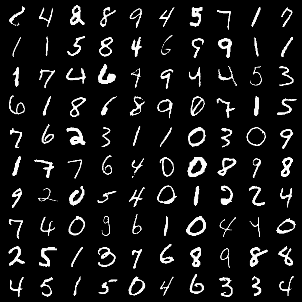 2 4 8 8 9 4 5 7 1 7
1 1 5 8 4 6 9 9 1 1
1 7 4 6 4 9 4 4 5 3
6 1 8 6 8 9 0 7 1 5
7 6 2 3 1 1 0 3 0 9
1 7 7 6 4 0 0 8 9 8
9 2 0 5 4 0 1 2 2 4
7 4 0 9 6 1 0 4 4 0
2 5 1 3 7 6 8 9 8 8
4 5 1 5 0 4 6 3 3 4